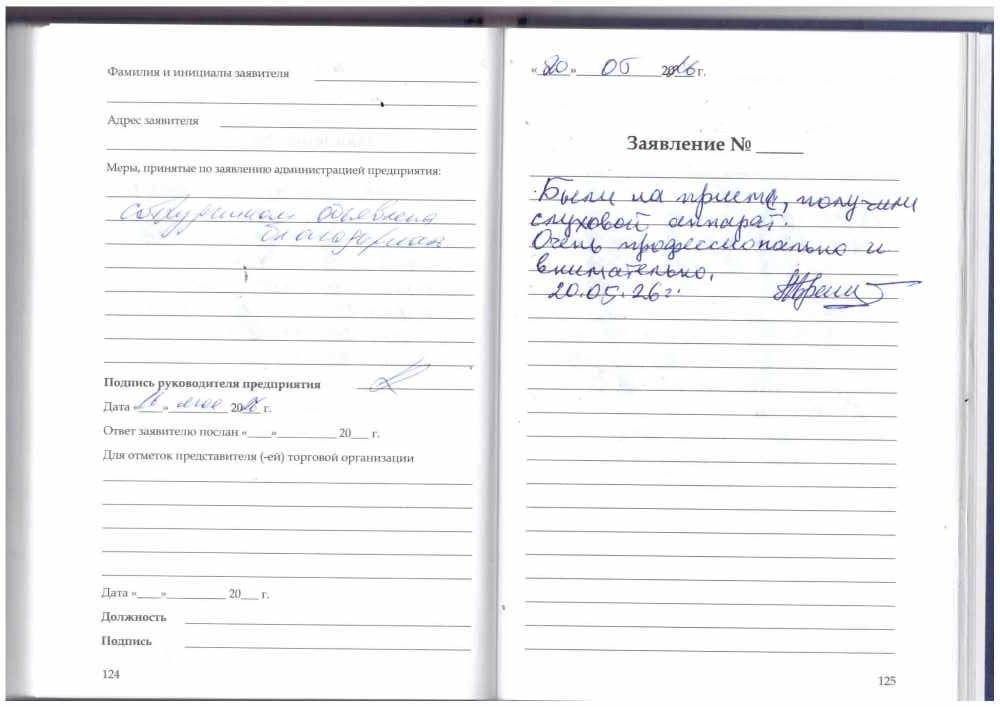 Фамилия и инициалы заявителя
Адрес заявителя
Меры, принятые по заявлению администрацией предприятия:
сотрудникам объявлена
благодарность
Подпись руководителя предприятия
Дата «26» мая 2026 г.
Ответ заявителю послан «____»__________ 20___ г.
Для отметок представителя (-ей) торговой организации
Дата «____»__________ 20___ г.
Должность
Подпись
124
«20» 05 2026 г.
Заявление № _____
Были на приеме, получили
слуховой аппарат.
Очень профессионально и
внимательно.
20.05.26г.
125